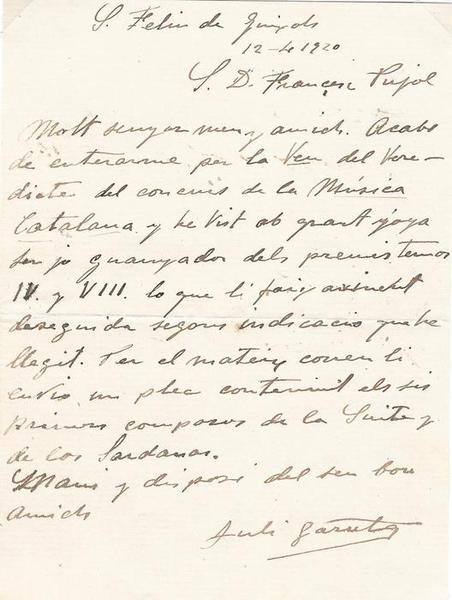 S. Feliu de Guixols
12-4-1920
S. D. Francesc Pujol
Molt senyor meu y amich. Acabo
de enterarme per la Veu del Vere-
dicte del concurs de la Música
Catalana y he vist ab grant joya
ser jo guanyador dels premis temas
IV. y VIII. lo que li faig avinent
deseguida segons indicació que he
llegit. Per el mateix correu li
envio un plec contenint els sis
primers compasos de la Suite y
de las Sardanas.
Mani y disposi del seu bon
amich
Juli Garreta